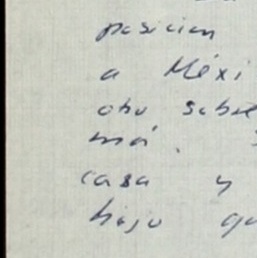 posicion
a Méxi
otro sobre
má.
casa y
hijo qu